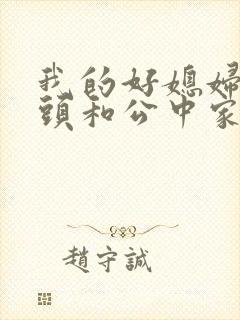 我的好媳婦
頭和公中家
趙守誠